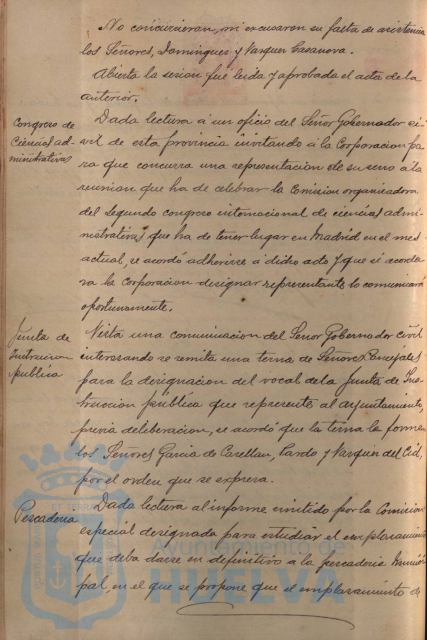 No concurrieron, ni excusaron su falta de asistencia
los Señores, Dominguez y Vazquez Casanova.
Abierta la sesion fué leida y aprobada el acta de la
anterior.
Congreso de
Ciencias ad-
ministrativas
Dada lectura á un oficio del Señor Gobernador ci-
vil de esta provincia invitando á la Corporacion pa
ra que concurra una representacion de su seno á la
reunion que ha de celebrar la Comision organizadora
del segundo congreso internacional de ciencias admi-
nistrativas que ha de tener lugar en Madrid en el mes
actual, se acordó adherirse á dicho acto y que si acorda
ra la Corporacion designar representante lo comunicará
oportunamente.
Junta de
Instruccion
pública
Vista una comunicacion del Señor Gobernador civil
interesando se remita una terna de Señores Concejales
para la designacion del vocal de la Junta de Ins
truccion pública que represente al ayuntamiento,
previa deliberacion, se acordó que la terna la formen
los Señores Garcia de Castellan, Pardo y Vazquez del Cid,
por el orden que se expresa.
Pescaderia
Dada lectura al informe emitido por la Comision
especial designada para estudiar el emplazamiento
que deba darse en definitivo á la pescaderia munici
pal, en el que se propone que el emplazamiento de
Ayuntamiento de
HUELVA